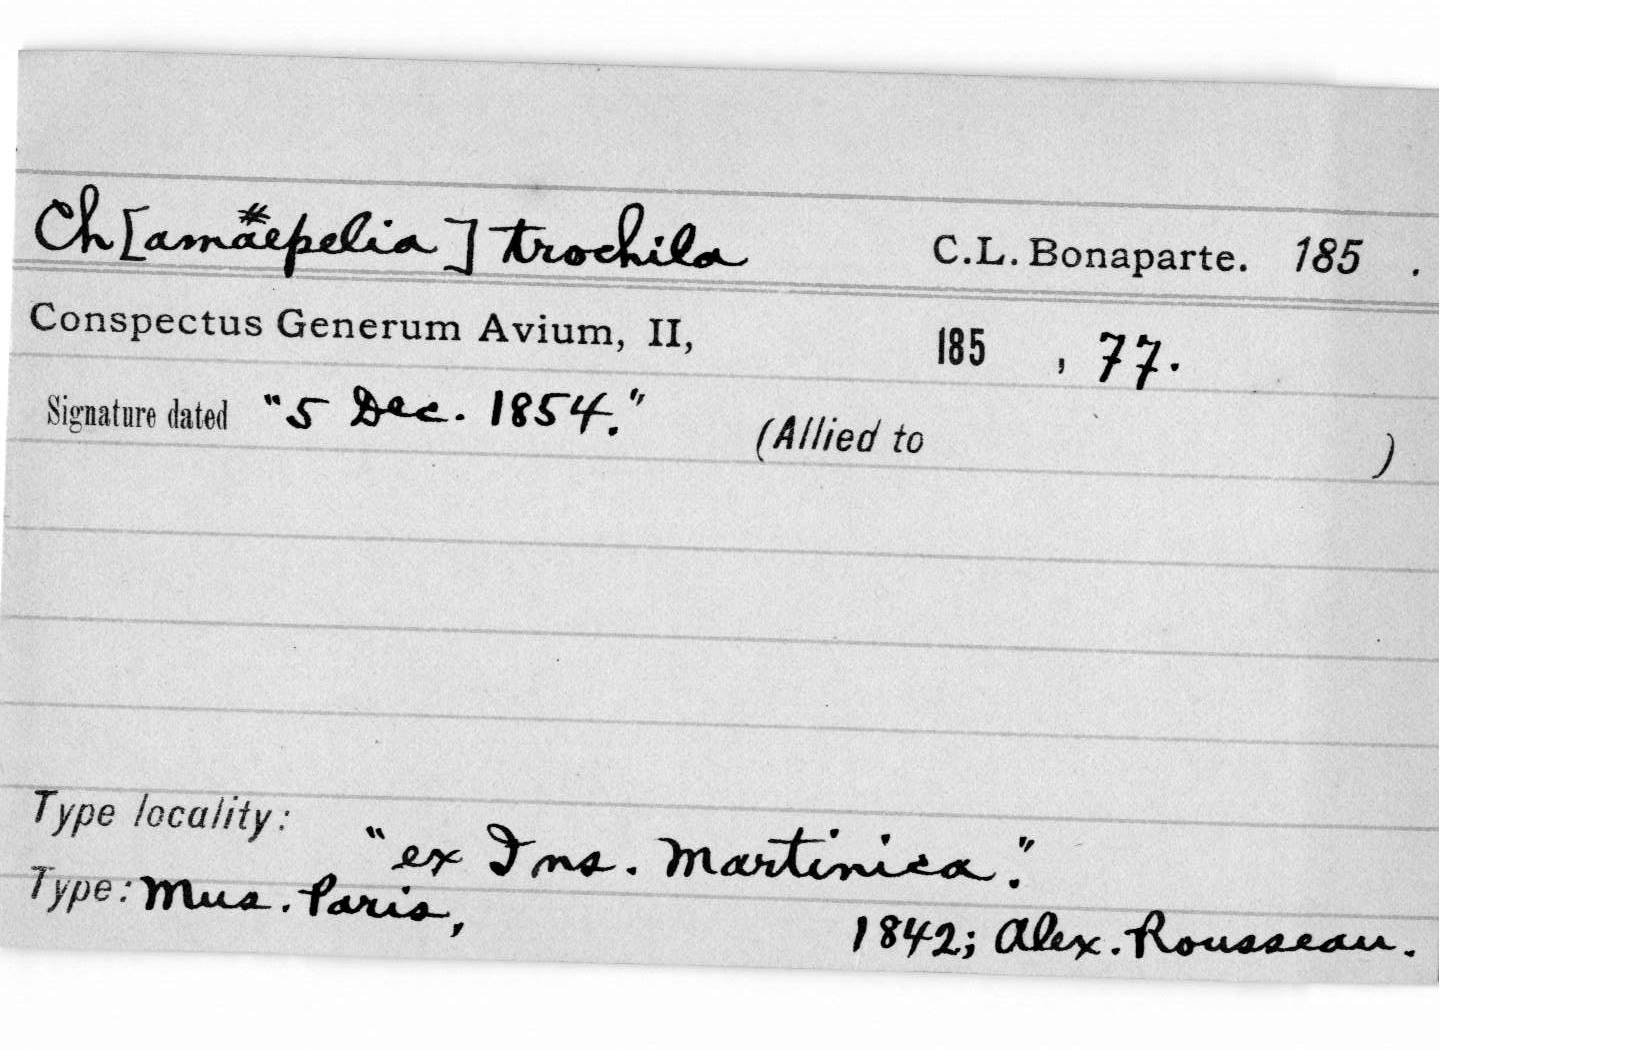 Ch[amaepelia] trochila C.L. Bonaparte. 185 .
Conspectus Generum Avium, II, 185 , 77.
Signature dated "5 Dec. 1854." (Allied to )
Type locality: "ex Ins. Martinica."
Type: Mus. Paris, 1842; Alex. Rousseau.